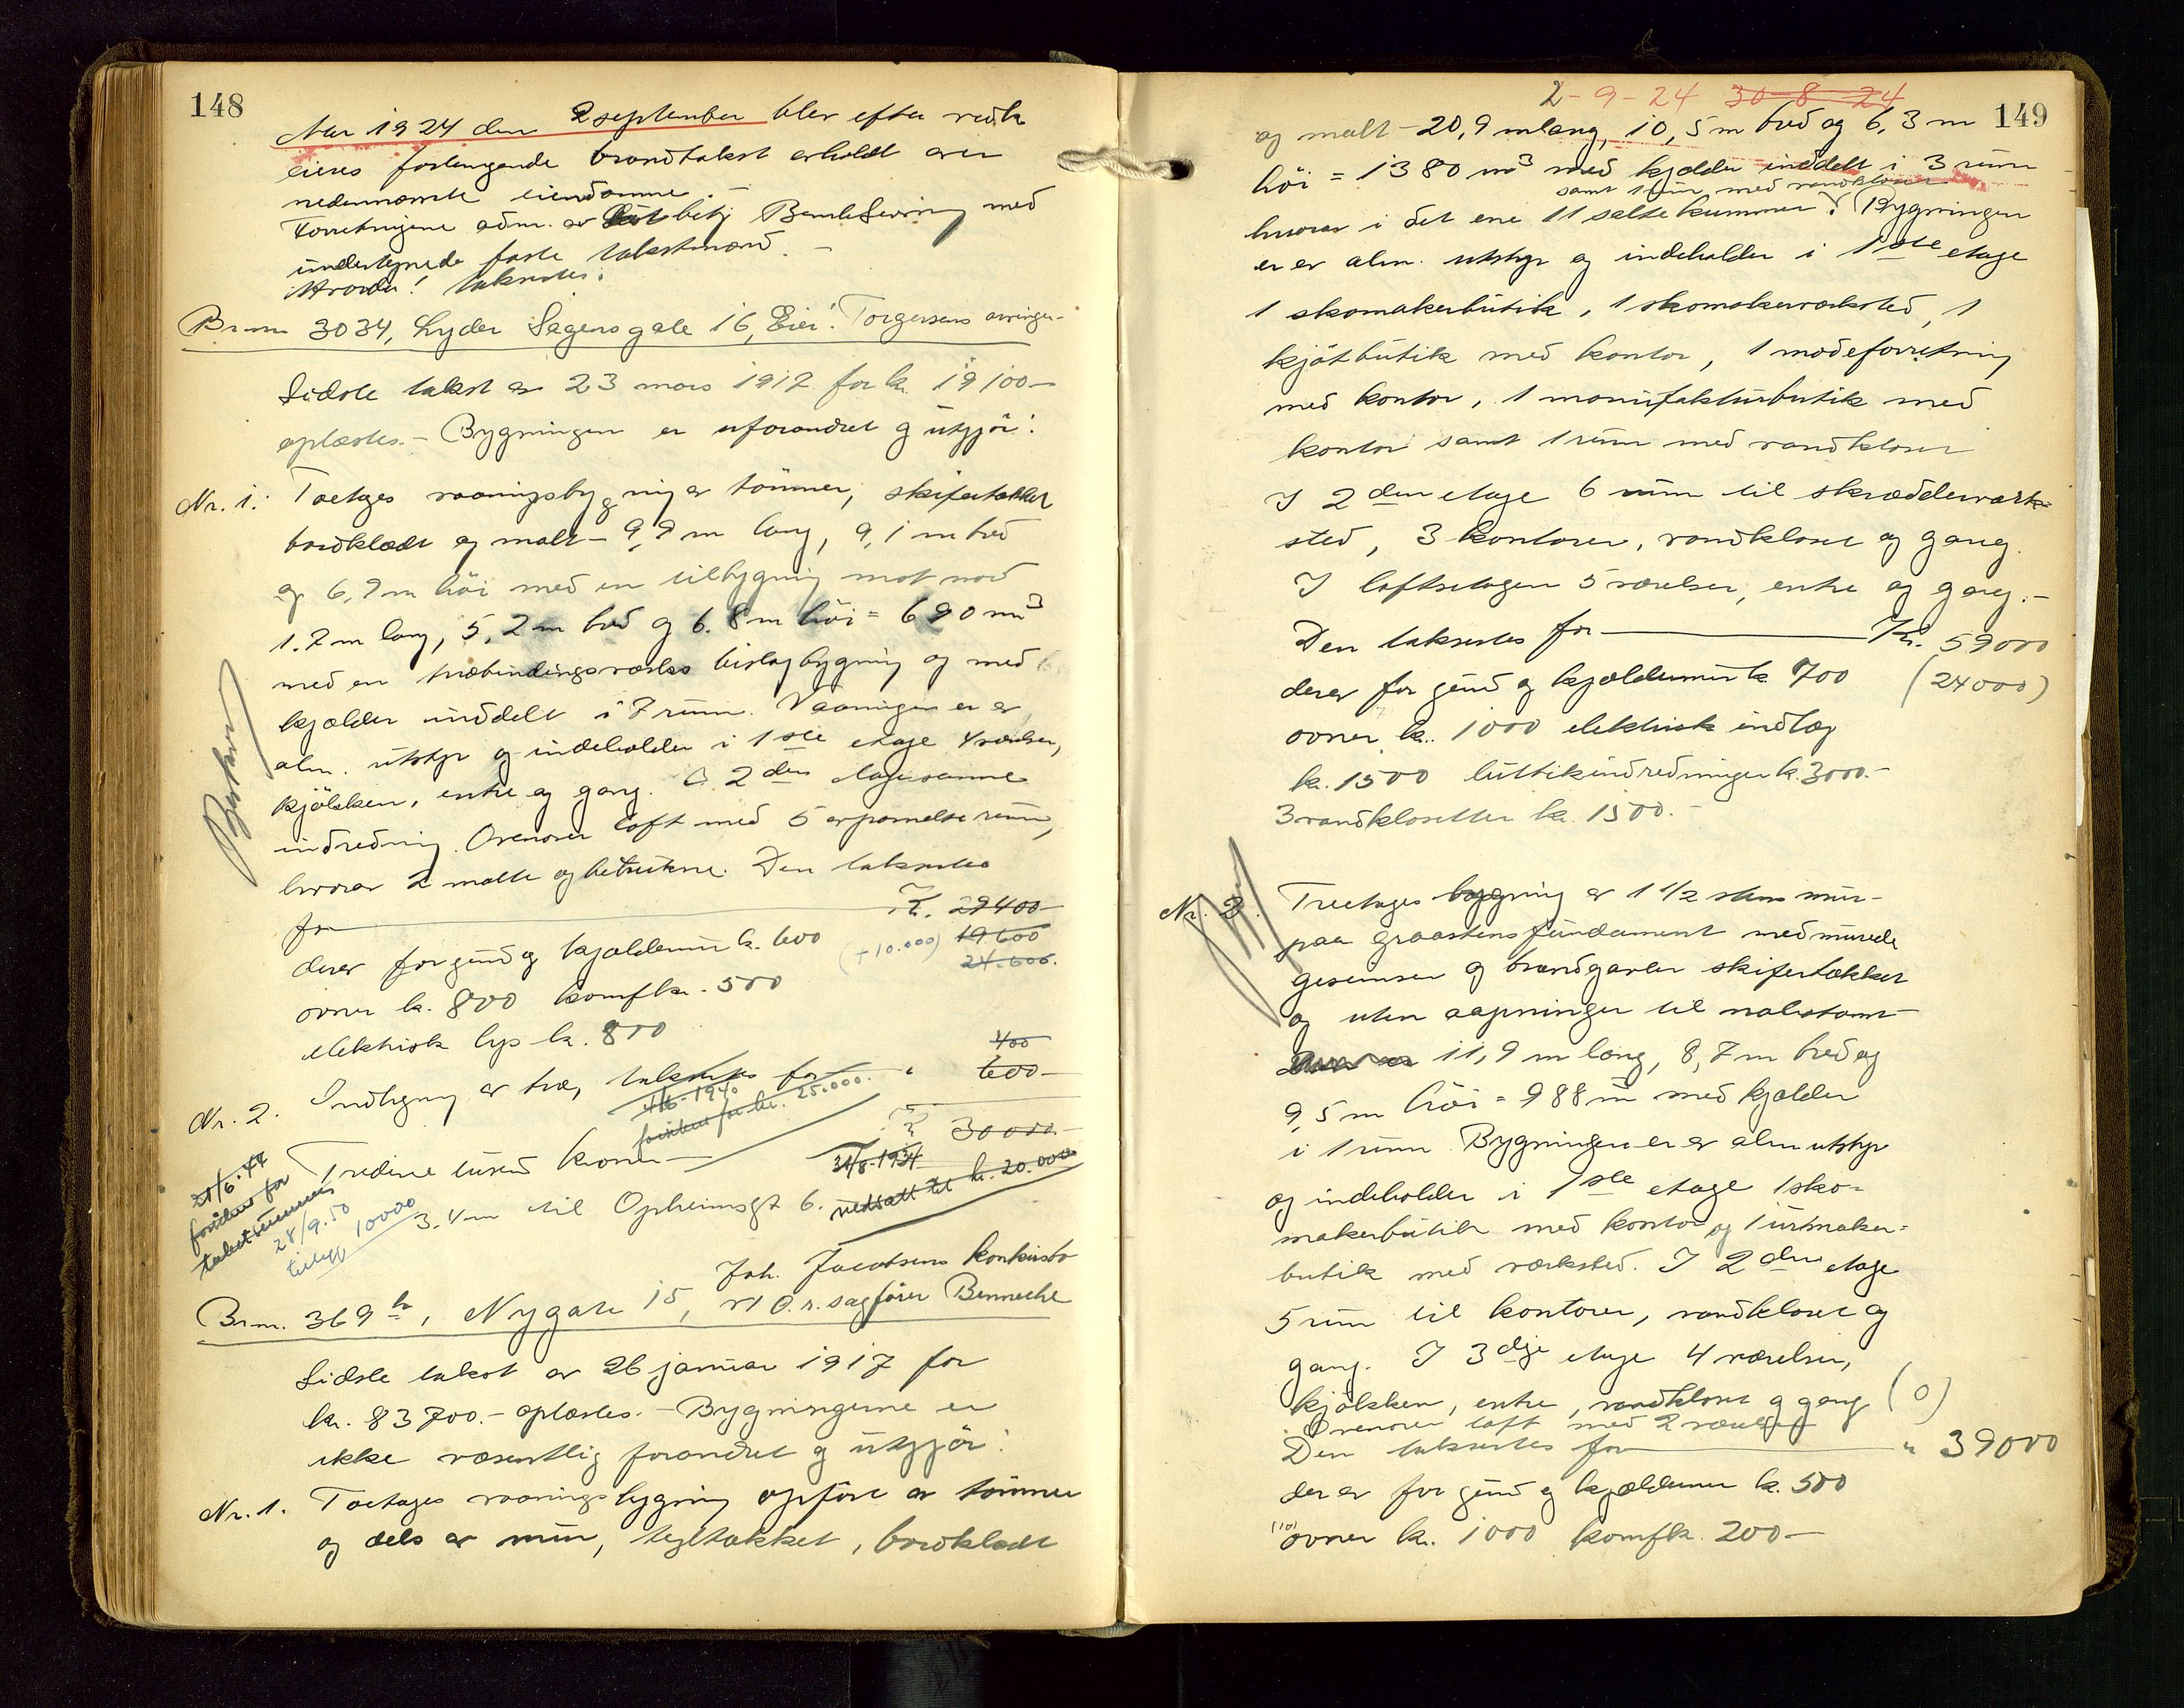 148
Aar 1924 den 2 september blev efter vedk
eieres forlangende brandtakst avholdt over
nedennævnte eiendomme.-
Forretningene adm. av betj Bernh Severin med
undertegnede faste takstmænd. -
Hvorda! taksertes:
Br.nr. 3034, Lyder Sagens gate 16, Eier: Torgersens arvinger-
Sidste takst av 23 mars 1917 for kr. 19100-
oplæstes.- Bygningen er uforandret og utgjör:
Nr. 1. Toetages vaaningsbygning av tömmer, skifertækket
bordklædt og malt - 9,7 m lang, 9,1 m bred
og 6,7 m höi med en tilbygning mot nord
1.7 m lang, 5,2 m bred og 6.8 m höi = 690 m3
med en træbindingsverks bislagbygning og med
kjælder inddelt i 7 rum. Vaaningen er av
alm. utstyr og indeholder i 1ste etage 4 værelser,
kjökken, entre og gang. I 2den etage samme
indredning. Ovenover loft med 5 avpanelte rum,
hvorav 2 malte og betrukne. Den takseres
for Kr. 29400-
derav for grund og kjældermur kr. 600 (+10.000) 19600
24.600.
ovner kr. 800 komf kr. 500
elektrisk lys kr. 800
400
Nr. 2. Indhegning av træ, takseres for " 600-
4/6-1940
forhöiet for kr. 25.000.
Kr. 30000.-
Tredive tusend kroner-
31/8-1934
nedsatt til kr. 20.000
3.4 m til Opheimsgt 6.
21/6.44
takstsummen
28/9.50
tillegg 10000
Bestaar
Joh. Jacobsens konkursbo
Br.nr. 369 b, Nygate 15, v/ O.r. sagförer Bennecke
Sidste takst av 26 januar 1917 for
kr. 83700.- oplæstes.- Bygningerne er
ikke væsentlig forandret og utgjör:
Nr. 1. Toetages vaaningsbygning opfört av tömmer
og dels av mur, tegltækket, bordklædt
149
2-9-24 30-8-24
og malt - 20,9 m lang, 10,5 m bred og 6,3 m
höi = 1380 m3 med kjelder inddelt i 3 rum
samt 1 rum med vandkloset
hvorav i det ene 11 saltekummer. Bygningen
er av alm. utstyr og indeholder i 1ste etage
1 skomakerbutik, 1 skomakerverksted, 1
kjötbutik med kontor, 1 modeforretning
med kontor, 1 manufakturbutik med
kontor samt 1 rum med vandkloset
I 2den etage 6 rum til skrædderverk-
sted, 3 kontorer, vandkloset og gang.
I loftsetagen 5 værelser, entre og gang.-
Den takseres for Kr. 59000
derav for grund og kjældermur kr. 700 (24000)
ovner kr. 1000 elektrisk indlæg
kr. 1500 buttikindredninger kr. 3000.-
3 vandklosetter kr. 1500.-
Nr. 2. Treetages bygning av 1 1/2 stens mur-
paa graastensfundament med murede
gesimser og brandgavler skifertækket
og uten aapninger til nabotomt
11,9 m lang, 8,7 m bred og
9,5 m höi = 988 m3 med kjælder
i 1 rum Bygningen er av alm utstyr
og indeholder i 1ste etage 1 sko-
makerbutik med kontor og 1 urmaker-
butik med verksted. I 2den etage
5 rum til kontorer, vandkloset og
gang. I 3dje etage 4 værelser,
kjökken, entre, vandkloset og gang (0)
Ovenover loft med 2 værelser
Den takseres for " 39000
derav for grund og kjældermur kr. 500
(10) ovner kr. 1000 komf kr. 200-